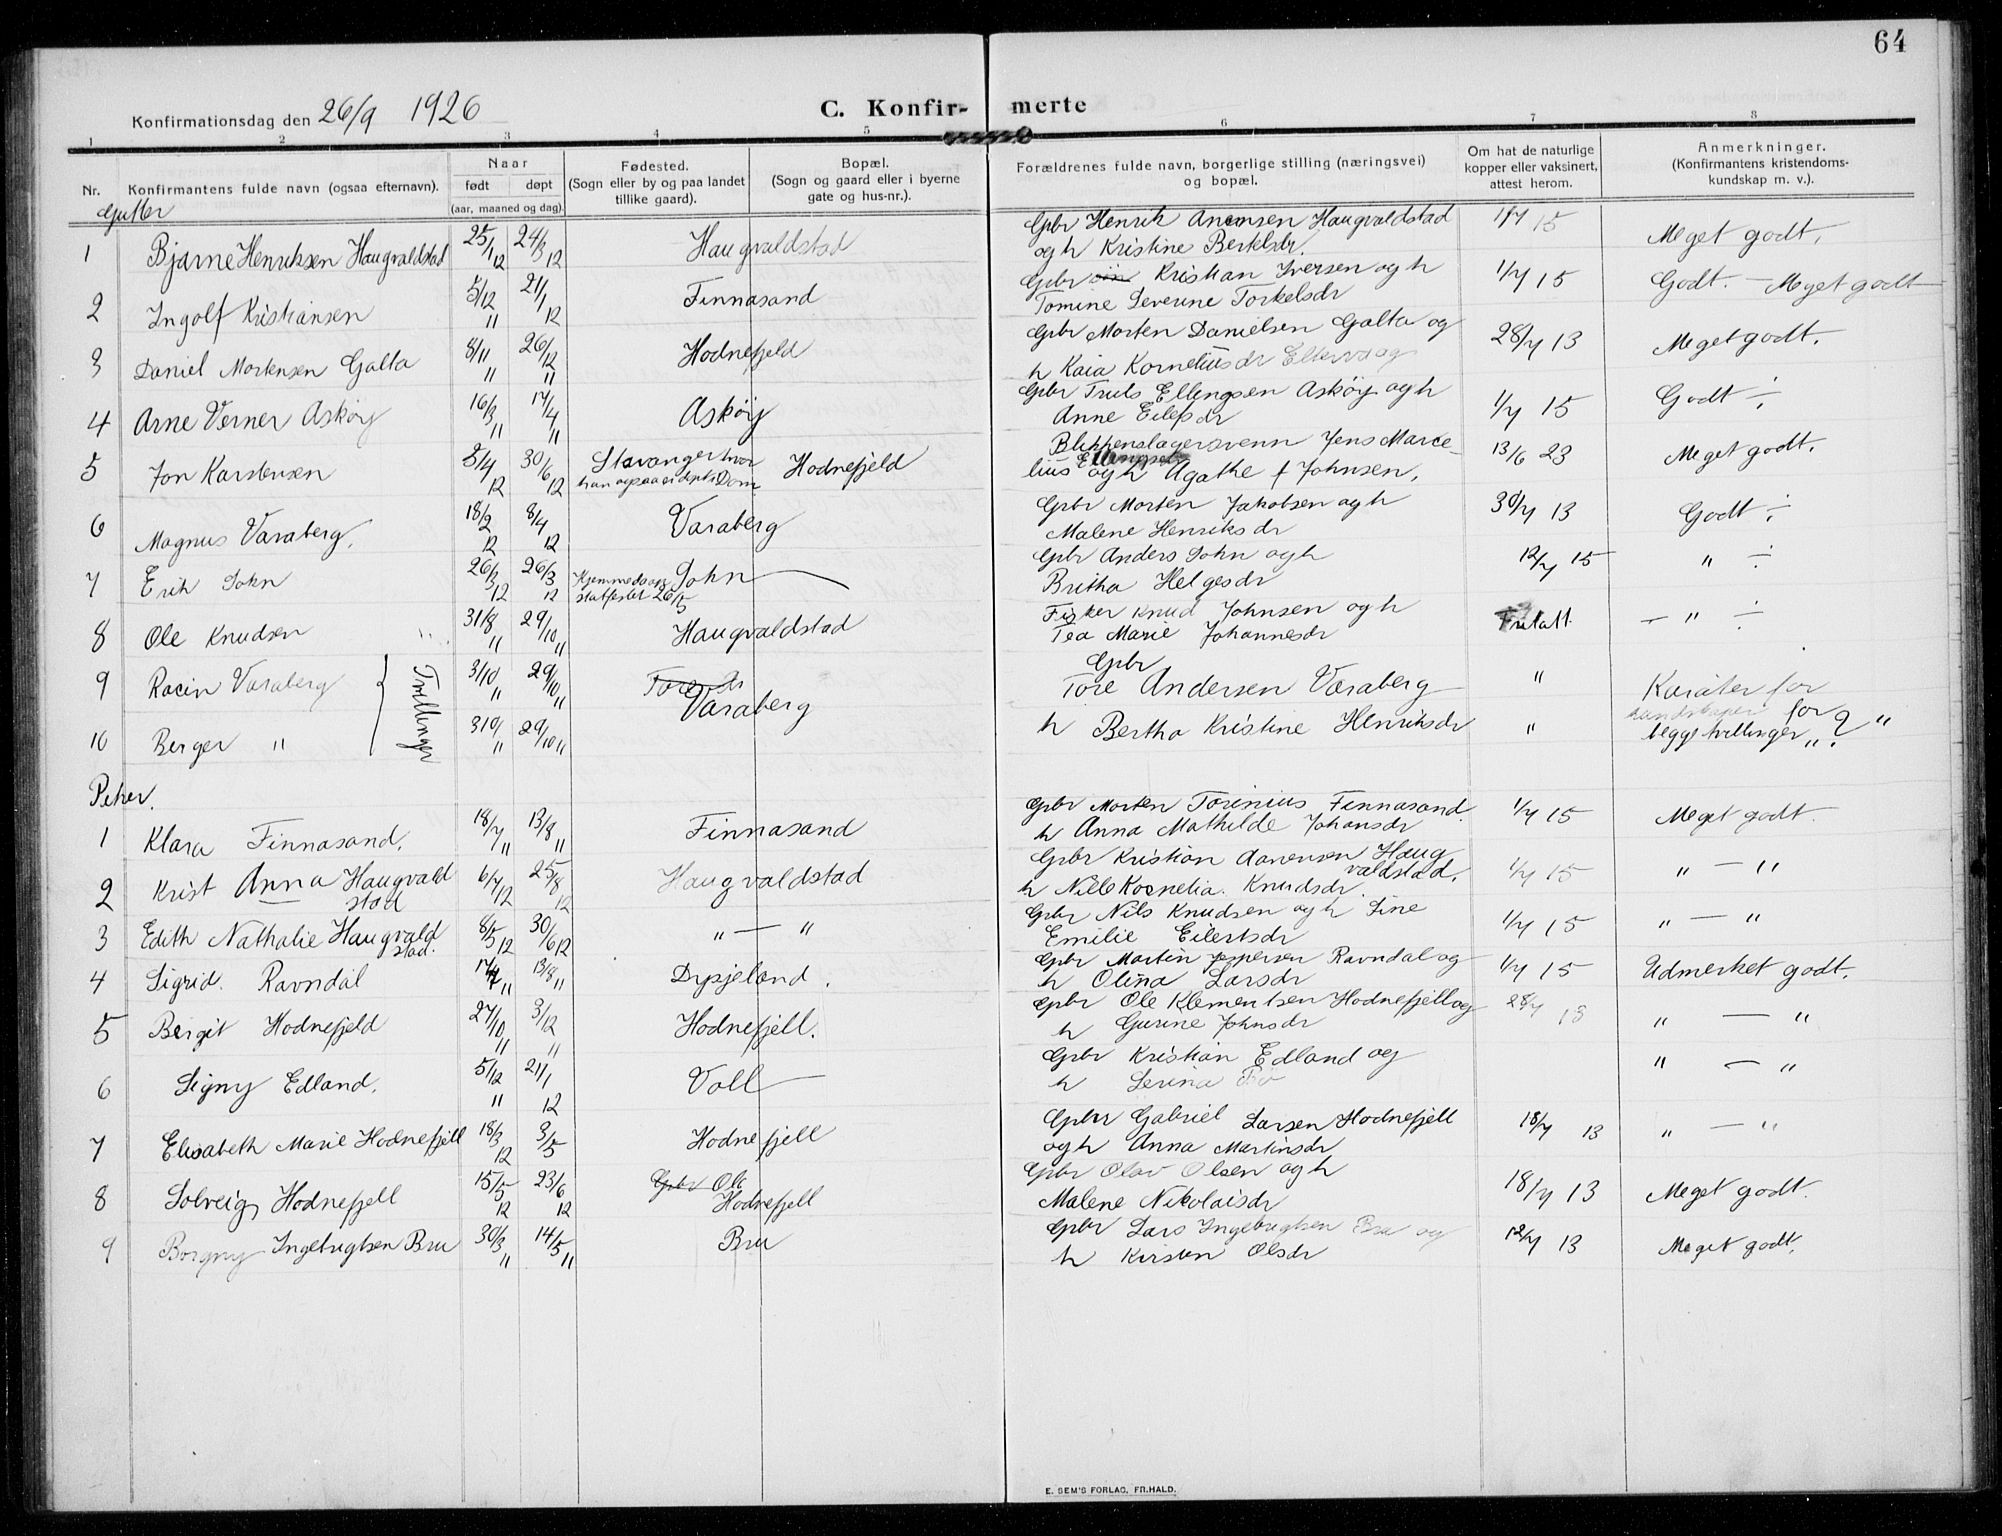 64
Konfirmationsdag den 26/9 1926 C. Konfir- merte
1 2 3 4 5 6 7 8
Nr. Konfirmantens fulde navn (ogsaa efternavn). Naar født døpt (aar, maaned og dag). Fødested. (Sogn eller by og paa landet tillike gaard). Bopæl. (Sogn og gaard eller i byerne gate og hus-nr.). Forældrenes fulde navn, borgerlige stilling (næringsvei) og bopæl. Om hat de naturlige kopper eller vaksinert, attest herom. Anmerkninger. (Konfirmantens kristendoms-kundskap m. v.).
Gutter
1 Bjarne Henriksen Haugvaldstad 25/1 12 24/3 12 Haugvaldstad Gbr Henrik Haugvaldstad og h Kristine Bertelsdr. 1/7 15 Meget godt.
2 Ingolf Kristiansen 5/12 11 21/1 12 Finnasand Gbr Kristian Iversen og h Tomine Severine Torkelsdr 1/7 15 Godt. — Meget godt
3 Daniel Mortensen Galta 8/11 11 26/12 11 Hodnefjeld Gbr Morten Danielsen Galta og h Kaia Korneliusdr Eltervaag 28/7 13 Meget godt.
4 Arne Verner Askøy 16/3 11 17/4 11 Askøy Gbr Truls Ellingsen Askøy og h Anne Eilefsdr 1/7 15 Godt ÷
5 Jon Karstensen 8/4 12 30/6 12 Stavanger hvor han ogsaa er døpt i Dom Hodnefjeld Blikkenslagersvenn Jens Marcelius og h Agathe f Johnsen. 13/6 23 Meget godt.
6 Magnus Varaberg. 18/2 12 8/4 12 Varaberg Gbr Morten Jakobsen og h Malene Henriksdr 30/7 13 Godt ÷
7 Erik Sokn 26/3 12 26/3 12 Hjemmedøpt stadfestet 26/5 Sokn Gbr Anders Sokn og h Britha Helgesdr 12/7 15 " ÷
8 Ole Knudsen " 31/8 11 29/10 11 Haugvaldstad Fisker Knud Johnsen og h Tea Marie Johannesdr Fritatt. — " ÷
9 Varaberg 3/10 11 29/10 11 Varaberg Gbr Tore Andersen Varaberg " Karakter for
Tvillinger
10 Berger " 3/10 11 29/10 11 h Bertha Kristine Henriksdr " kundskaper for begge tvillinger " ? "
Piker.
1 Klara Finnasand. 18/7 11 13/8 11 Finnasand Gbr Morten Torinius Finnasand. h Anna Mathilde Johansdr 1/7 15 Meget godt.
2 Krist Anna Haugvaldstad 6/7 12 25/8 12 Haugvaldstad Gbr Kristian Aanensen Haugvaldstad. h Kornelia Knudsdr 1/7 15 " — "
3 Edith Nathalie Haugvaldstad. 8/5 12 30/6 12 " — " Gbr Nils Knudsen og h Sine Emilie Eilertsdr 1/7 15 " — "
4 Sigrid. Ravndal 11 13/8 11 Dysjeland. Gbr Martin Ravndal og h Olina Larsdr 1/7 15 Udmerket godt.
5 Bergit Hodnefjeld 27/10 11 3/12 11 Hodnefjell. Gbr Ole Klementsen Hodnefjell og h Gurine Johnsdr 28/7 13 " — "
6 Signy Edland. 5/12 11 21/1 12 Voll Gbr Kristian Edland og h Serina Bø " — "
7 Elisabeth Marie Hodnefjell 18/3 12 3/5 Hodnefjell Gbr Gabriel Larsen Hodnefjell og h Anna Martinsdr 18/7 13 " — "
8 Solveig Hodnefjell 15/5 12 23/6 12 Gbr Ole Hodnefjell Gbr Olav Olsen og h Malene Nikolaisdr 18/7 13 Meget godt.
9 Borgny Ingebrigtsen Bru 30/3 11 14/5 11 Bru Gbr Lars Ingebrigtsen Bru og h Kirsten Olsdr 12/7 13 Meget godt.
E. SEM'S FORLAG, FR.HALD.